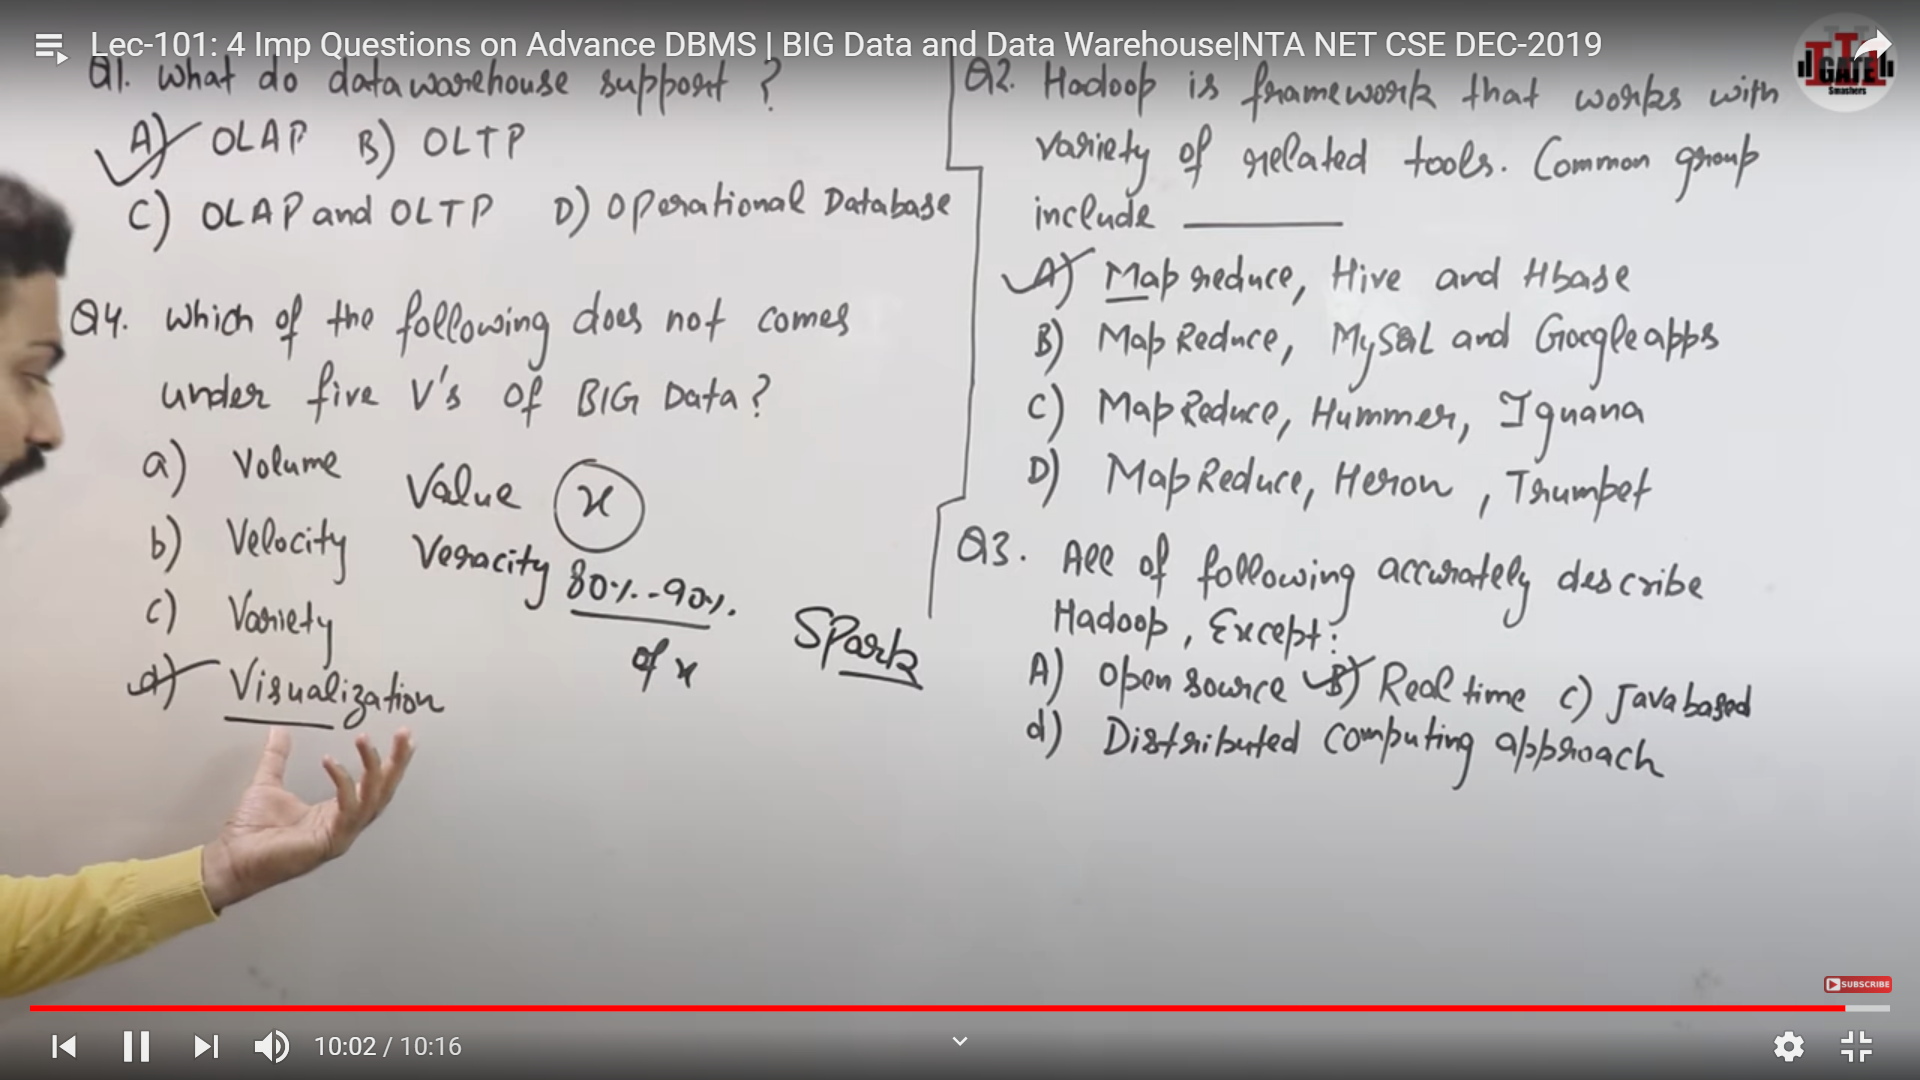 Lec-101: 4 Imp Questions on Advance DBMS | BIG Data and Data Warehouse|NTA NET CSE DEC-2019
GATE
Smashers
Q1. What do datawarehouse support ?
A) OLAP B) OLTP
C) OLAP and OLTP D) Operational Database
Q4. Which of the following does not comes
under five V's of BIG Data?
a) Volume
b) Velocity
c) Variety
d) Visualization
Value x
Veracity 80%-90%.
of x
Spark
Q2. Hadoop is framework that works with
variety of related tools. Common group
include
A) Mapreduce, Hive and Hbase
B) MapReduce, MySQL and Google apps
C) MapReduce, Hummer, Iguana
D) MapReduce, Heron, Trumpet
Q3. All of following accurately describe
Hadoop, Except:
A) Open source B) Real time C) Java based
d) Distributed computing approach
SUBSCRIBE
10:02 / 10:16